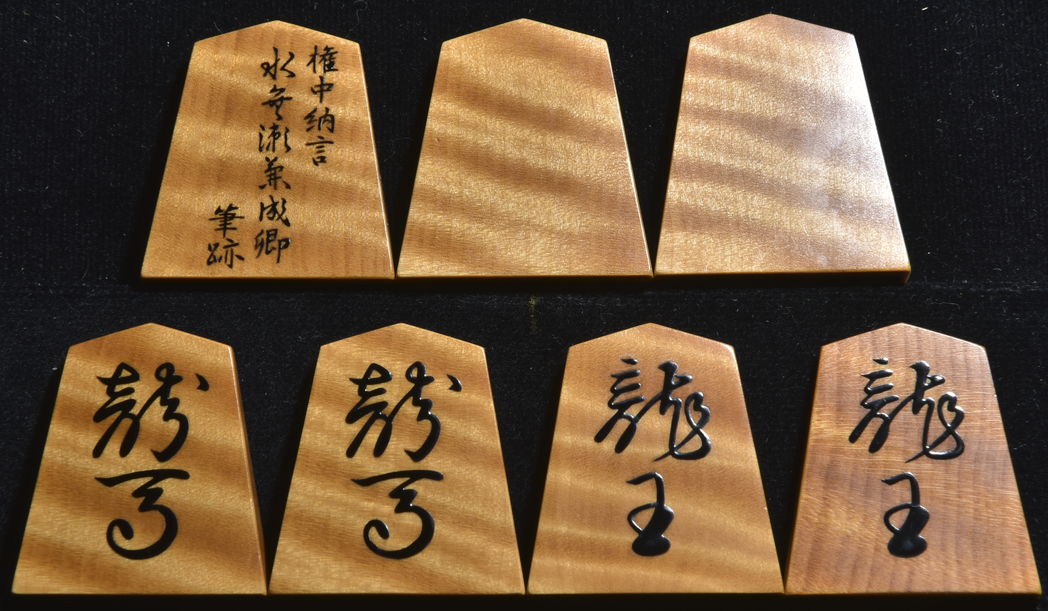 権中納言
水無瀬兼成卿
筆跡
龍馬
龍馬
龍王
龍王